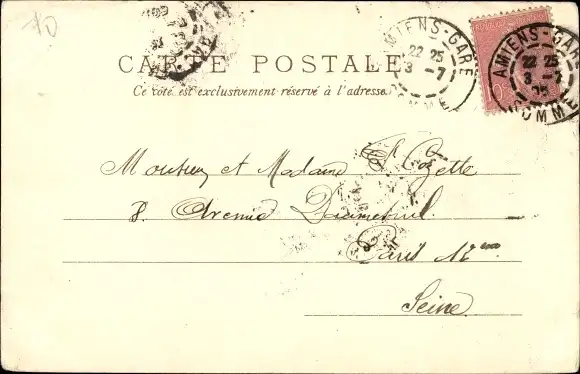 10
CARTE POSTALE
Ce côté est exclusivement réservé à l'adresse
AMIENS-GARE
22 25
3 -7
SOMME
AMIENS-GARE
22 25
3 -7
05
SOMME
Monsieur et Madame Ch Cozette
8. Avenue Daumesnil
Paris 12eme
Seine